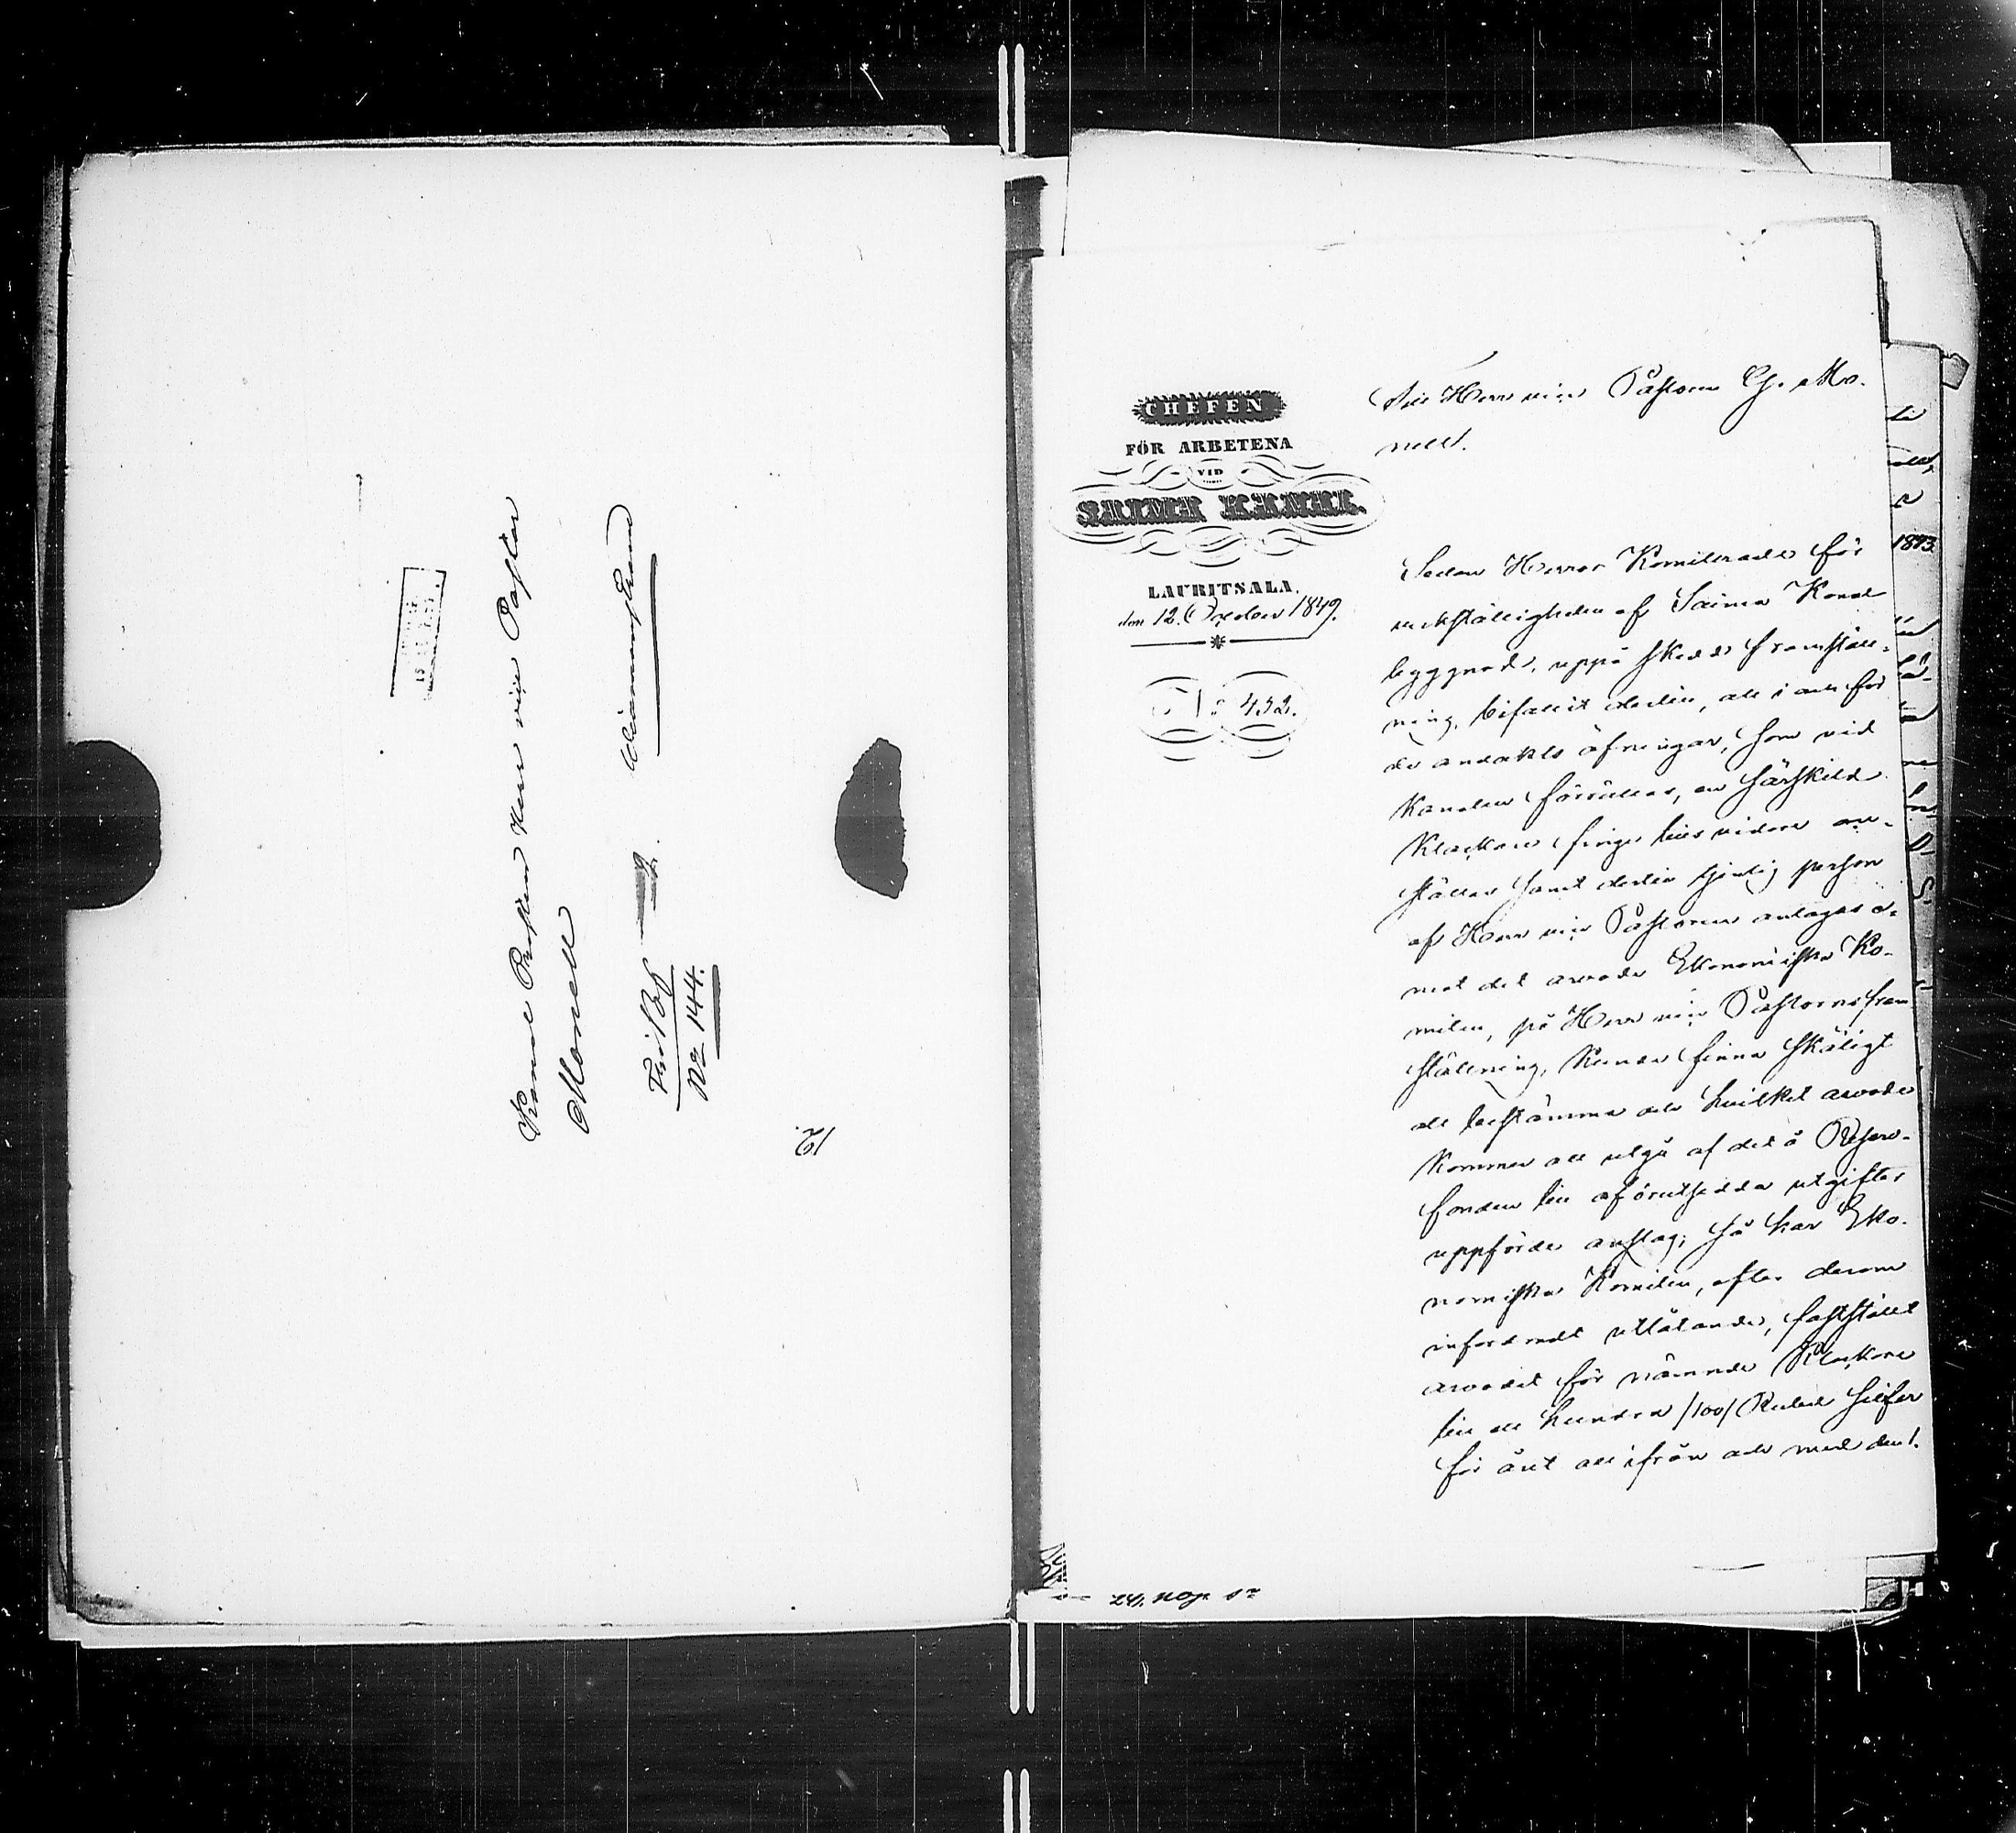 Kanal Presten Herr vice Pastor
Monell
Wilmanstrand
Fri Bref
No 144.
12.
CHEFEN
FÖR ARBETENA
VID
SAIMA KANAL.
LAURITSALA.
den 12. October 1849.
No 432.
Till Herr vice Pastorn G. Mo-
nell.
Sedan Herrar Komiterade för
verkställigheten af Saima Kanal
byggnad, uppå skedd framställ-
ning, bifallit dertill, att i och för
de andakts öfningar, som vid
Kanalen förrättas, en särskild
Klockare finge tills vidare an-
ställas samt dertill tjenlig person
af Herr vice Pastoren antagas e-
mot det arvode Ekonomiska Ko-
miten, på Herr vice Pastorns fram
ställning, kunde finna skäligt
att bestämma och hvilket arvode
kommer att utgå af det å Reserv-
fonden till oförutsedda utgifter
uppförde anslag; så har Eko-
nomiska Komiten, efter derom
infordradt utlåtande, fastställt
arvodet för nämnde Klockare
till ett hundra /100/ Rubel Silfver
för året att ifrån och med den 1.
1873